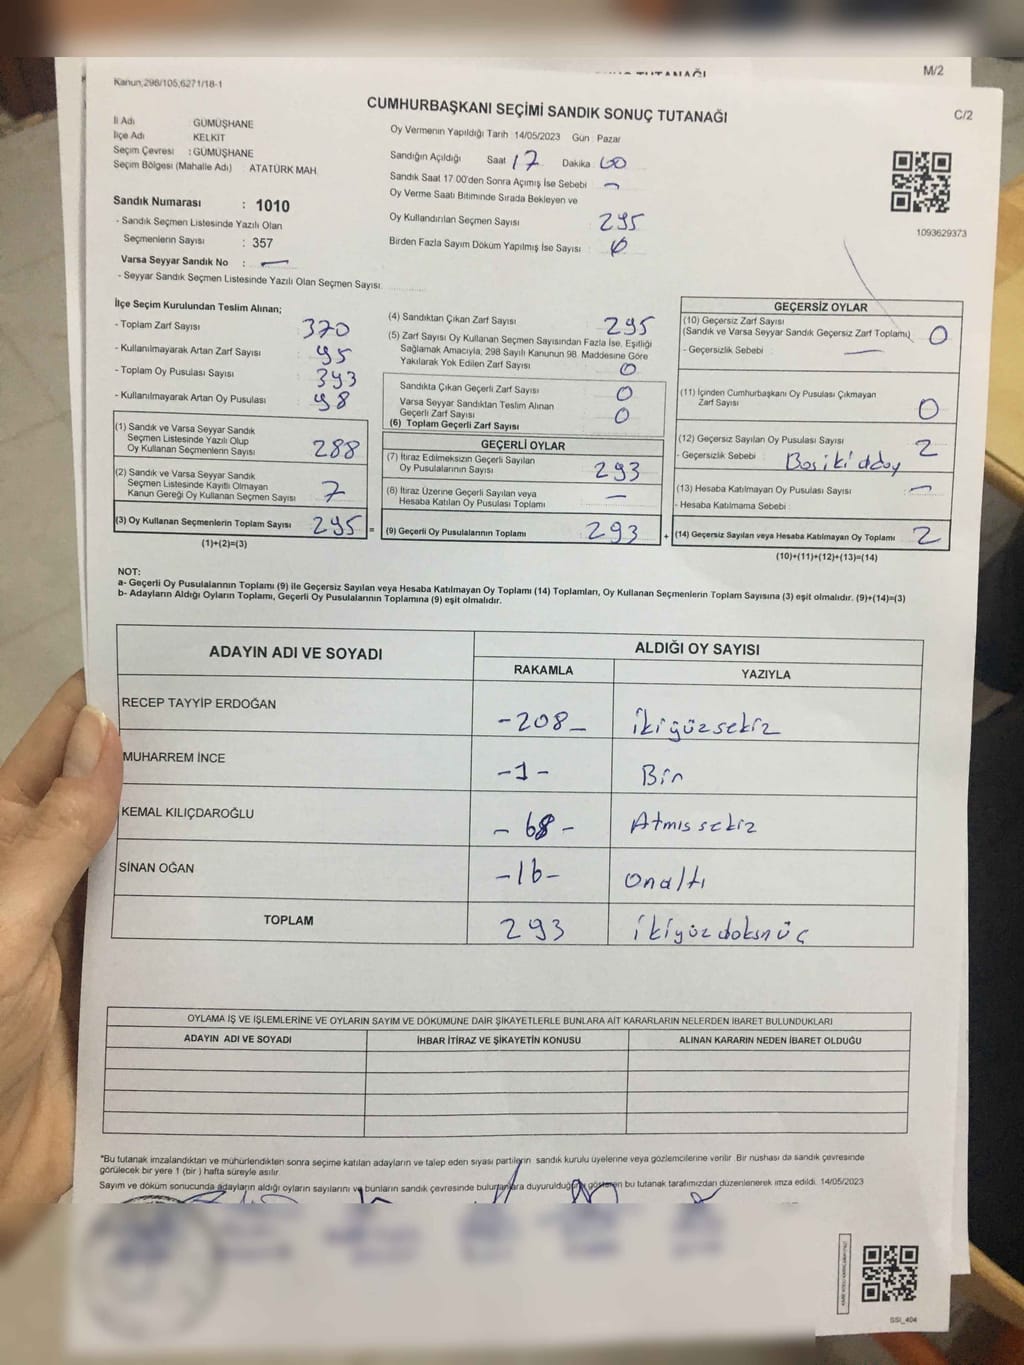 TUTANAĞI
M/2
Kanun;298/105,6271/18-1
CUMHURBAŞKANI SEÇİMİ SANDIK SONUÇ TUTANAĞI
C/2
İl Adı GÜMÜŞHANE
İlçe Adı KELKİT
Seçim Çevresi : GÜMÜŞHANE
Seçim Bölgesi (Mahalle Adı) ATATÜRK MAH.
Oy Vermenin Yapıldığı Tarih 14/05/2023 Gün Pazar
Sandığın Açıldığı Saat 17 Dakika 00
Sandık Saat 17.00'den Sonra Açımış İse Sebebi -
Oy Verme Saati Bitiminde Sırada Bekleyen ve
Oy Kullandırılan Seçmen Sayısı 295
Birden Fazla Sayım Döküm Yapılmış İse Sayısı
1093629373
Sandık Numarası : 1010
- Sandık Seçmen Listesinde Yazılı Olan
Seçmenlerin Sayısı : 357
Varsa Seyyar Sandık No : —
- Seyyar Sandık Seçmen Listesinde Yazılı Olan Seçmen Sayısı
İlçe Seçim Kurulundan Teslim Alınan;
- Toplam Zarf Sayısı 370
- Kullanılmayarak Artan Zarf Sayısı 95
- Toplam Oy Pusulası Sayısı 393
- Kullanılmayarak Artan Oy Pusulası 98
(1) Sandık ve Varsa Seyyar Sandık
Seçmen Listesinde Yazılı Olup
Oy Kullanan Seçmenlerin Sayısı 288
(2) Sandık ve Varsa Seyyar Sandık
Seçmen Listesinde Kayıtlı Olmayan
Kanun Gereği Oy Kullanan Seçmen Sayısı 7
(3) Oy Kullanan Seçmenlerin Toplam Sayısı 295 =
(1)+(2)=(3)
(4) Sandıktan Çıkan Zarf Sayısı 295
(5) Zarf Sayısı Oy Kullanan Seçmen Sayısından Fazla İse, Eşitliği
Sağlamak Amacıyla, 298 Sayılı Kanunun 98. Maddesine Göre
Yakılarak Yok Edilen Zarf Sayısı 0
Sandıkta Çıkan Geçerli Zarf Sayısı 0
Varsa Seyyar Sandıktan Teslim Alınan
Geçerli Zarf Sayısı 0
(6) Toplam Geçerli Zarf Sayısı
GEÇERLİ OYLAR
(7) İtiraz Edilmeksizin Geçerli Sayılan
Oy Pusulalarının Sayısı 293
(8) İtiraz Üzerine Geçerli Sayılan veya
Hesaba Katılan Oy Pusulası Toplamı —
(9) Geçerli Oy Pusulalarının Toplamı 293 +
GEÇERSİZ OYLAR
(10) Geçersiz Zarf Sayısı
(Sandık ve Varsa Seyyar Sandık Geçersiz Zarf Toplamı) 0
- Geçersizlik Sebebi —
(11) İçinden Cumhurbaşkanı Oy Pusulası Çıkmayan
Zarf Sayısı 0
(12) Geçersiz Sayılan Oy Pusulası Sayısı 2
- Geçersizlik Sebebi
(13) Hesaba Katılmayan Oy Pusulası Sayısı —
- Hesaba Katılmama Sebebi
(14) Geçersiz Sayılan veya Hesaba Katılmayan Oy Toplamı 2
(10)+(11)+(12)+(13)=(14)
NOT:
a- Geçerli Oy Pusulalarının Toplamı (9) ile Geçersiz Sayılan veya Hesaba Katılmayan Oy Toplamı (14) Toplamları, Oy Kullanan Seçmenlerin Toplam Sayısına (3) eşit olmalıdır. (9)+(14)=(3)
b- Adayların Aldığı Oyların Toplamı, Geçerli Oy Pusulalarının Toplamına (9) eşit olmalıdır.
ADAYIN ADI VE SOYADI
ALDIĞI OY SAYISI
RAKAMLA YAZIYLA
RECEP TAYYİP ERDOĞAN -208- ikiyüzsekiz
MUHARREM İNCE -1- Bir
KEMAL KILIÇDAROĞLU - 68 - Atmış sekiz
SİNAN OĞAN -16- onaltı
TOPLAM 293 ikiyüz doksnüç
OYLAMA İŞ VE İŞLEMLERİNE VE OYLARIN SAYIM VE DÖKÜMÜNE DAİR ŞİKAYETLERLE BUNLARA AİT KARARLARIN NELERDEN İBARET BULUNDUKLARI
ADAYIN ADI VE SOYADI İHBAR İTİRAZ VE ŞİKAYETİN KONUSU ALINAN KARARIN NEDEN İBARET OLDUĞU
*Bu tutanak imzalandıktan ve mühürlendikten sonra seçime katılan adayların ve talep eden siyasi partilerin sandık kurulu üyelerine veya gözlemcilerine verilir. Bir nüshası da sandık çevresinde
görülecek bir yere 1 (bir) hafta süreyle asılır.
Sayım ve döküm sonucunda adayların aldığı oyların sayılarını ve bunların sandık çevresinde bulunanlara duyurulduğunu gösteren bu tutanak tarafımızdan düzenlenerek imza edildi. 14/05/2023
SSI_404